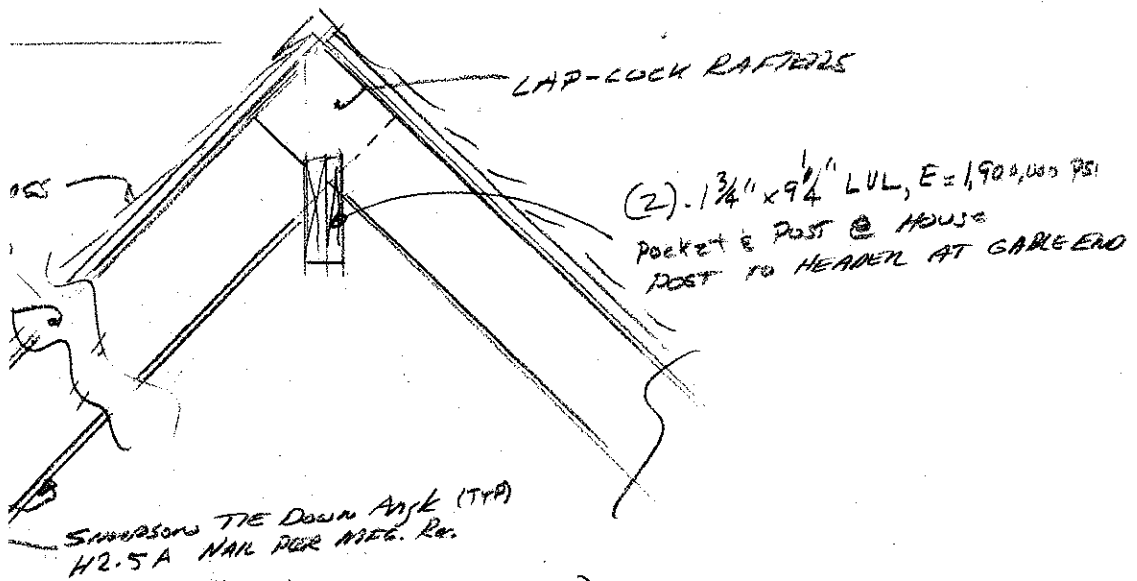 LAP-LOCK RAFTERS
(2). 1 3/4" x 9 1/4" LVL, E = 1,900,000 PSI
Pocket & POST @ HOUSE
POST TO HEADER AT GABLE END
SIMPSON TIE DOWN Angle (TYP)
H2.5A NAIL PER MFG. Rec.